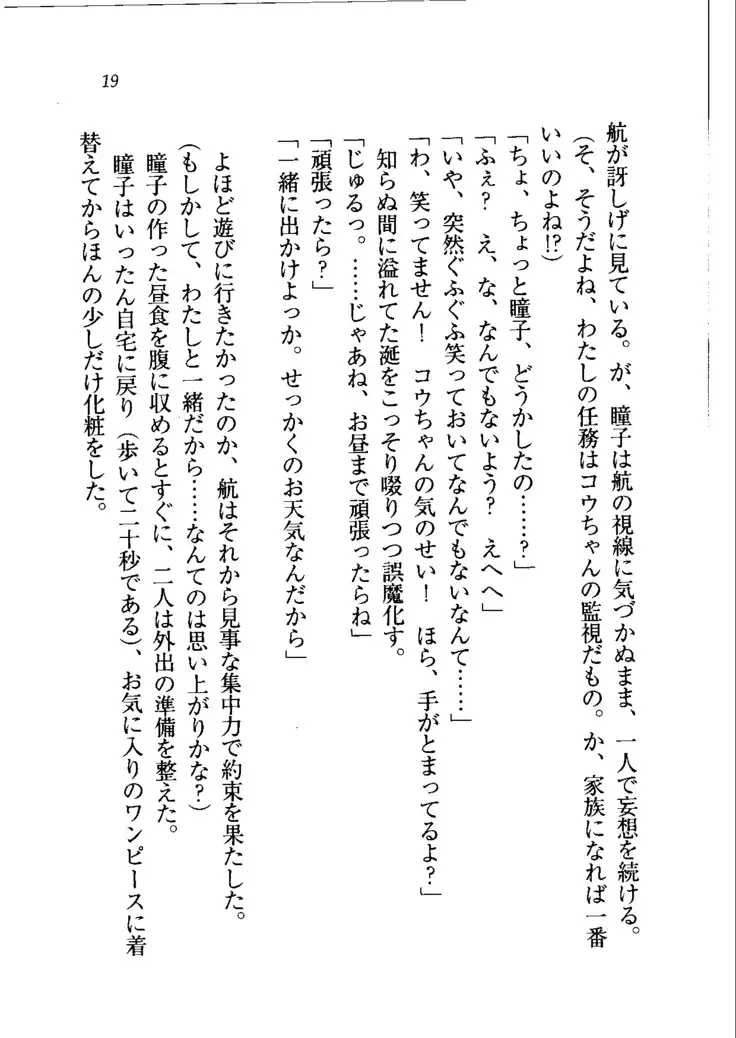 航が訝しげに見ている。が、瞳子は航の視線に気づかぬまま、一人で妄想を続ける。
(そ、そうだよね、わたしの任務はコウちゃんの監視だもの。か、家族になれば一番
いいのよね!?)
「ちょ、ちょっと瞳子、どうかしたの……?」
「ふぇ? え、な、なんでもないよう? えへへ」
「いや、突然ぐふぐふ笑っておいてなんでもないなんて……」
「わ、笑ってません! コウちゃんの気のせい! ほら、手がとまってるよ?」
知らぬ間に溢れてた涎をこっそり啜りつつ誤魔化す。
「じゅるっ。……じゃあね、お昼まで頑張ったらね」
「頑張ったら?」
「一緒に出かけよっか。せっかくのお天気なんだから」
よほど遊びに行きたかったのか、航はそれから見事な集中力で約束を果たした。
(もしかして、わたしと一緒だから……なんてのは思い上がりかな?)
瞳子の作った昼食を腹に収めるとすぐに、二人は外出の準備を整えた。
瞳子はいったん自宅に戻り(歩いて二十秒である)、お気に入りのワンピースに着
替えてからほんの少しだけ化粧をした。
19